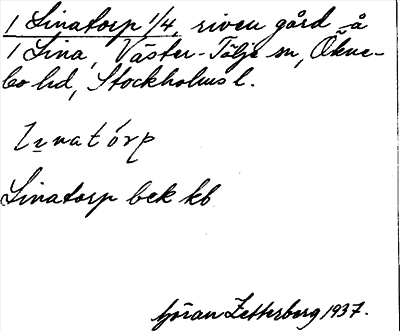 1 Linatorp 1/4, riven gård å
1 Lina, Väster-Tälje sn, Ökne-
bo hd, Stockholms l.
lɪnatórp
Linatorp bek kb
Göran Zetterberg 1937.